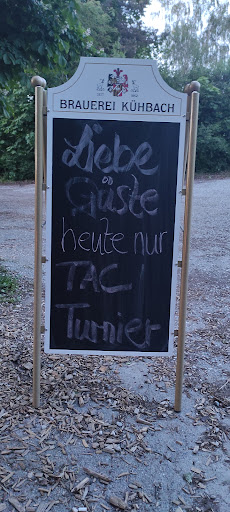 BRAUEREI KÜHBACH
Liebe
Gäste
heute nur
TAC!
Turnier